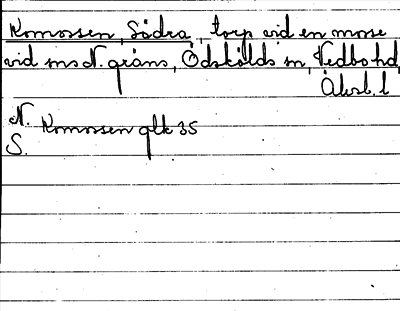 Komossen, Södra, torp vid en mosse
vid sns N. gräns, Ödskölds sn, Vedbo hd,
Älvsb. l
N. Komossen glk 35
S.